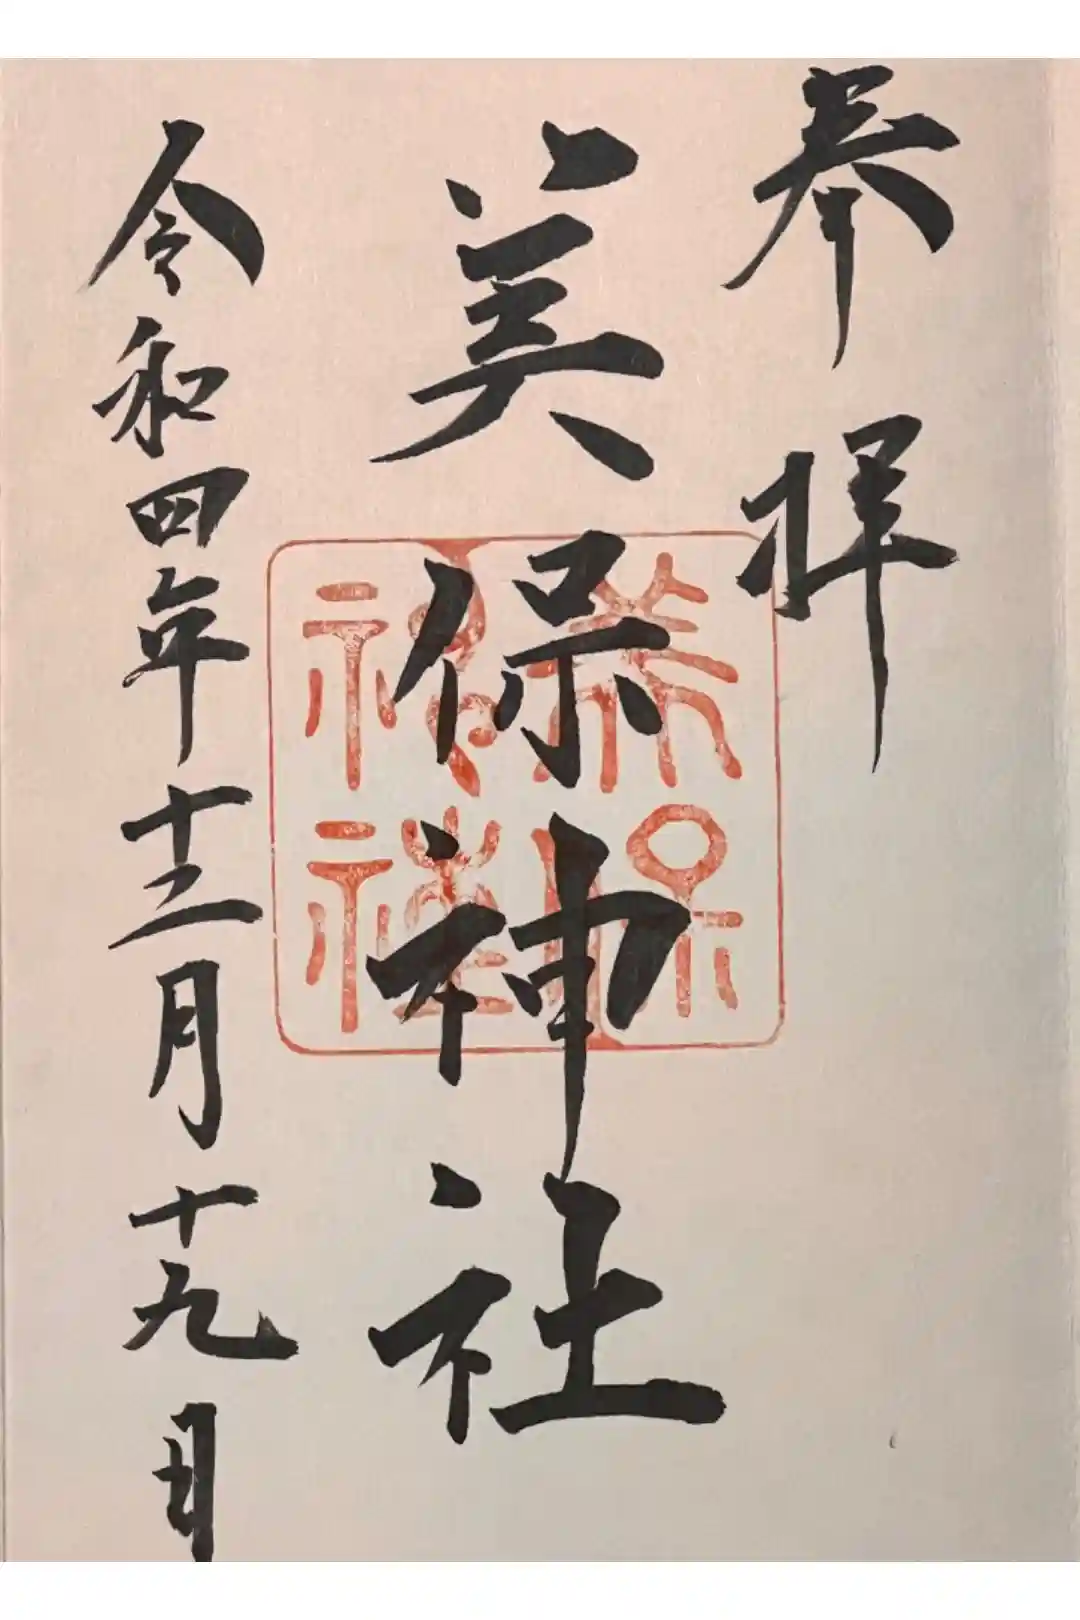 奉拝
美保神社
美保神社
令和四年十二月十九日